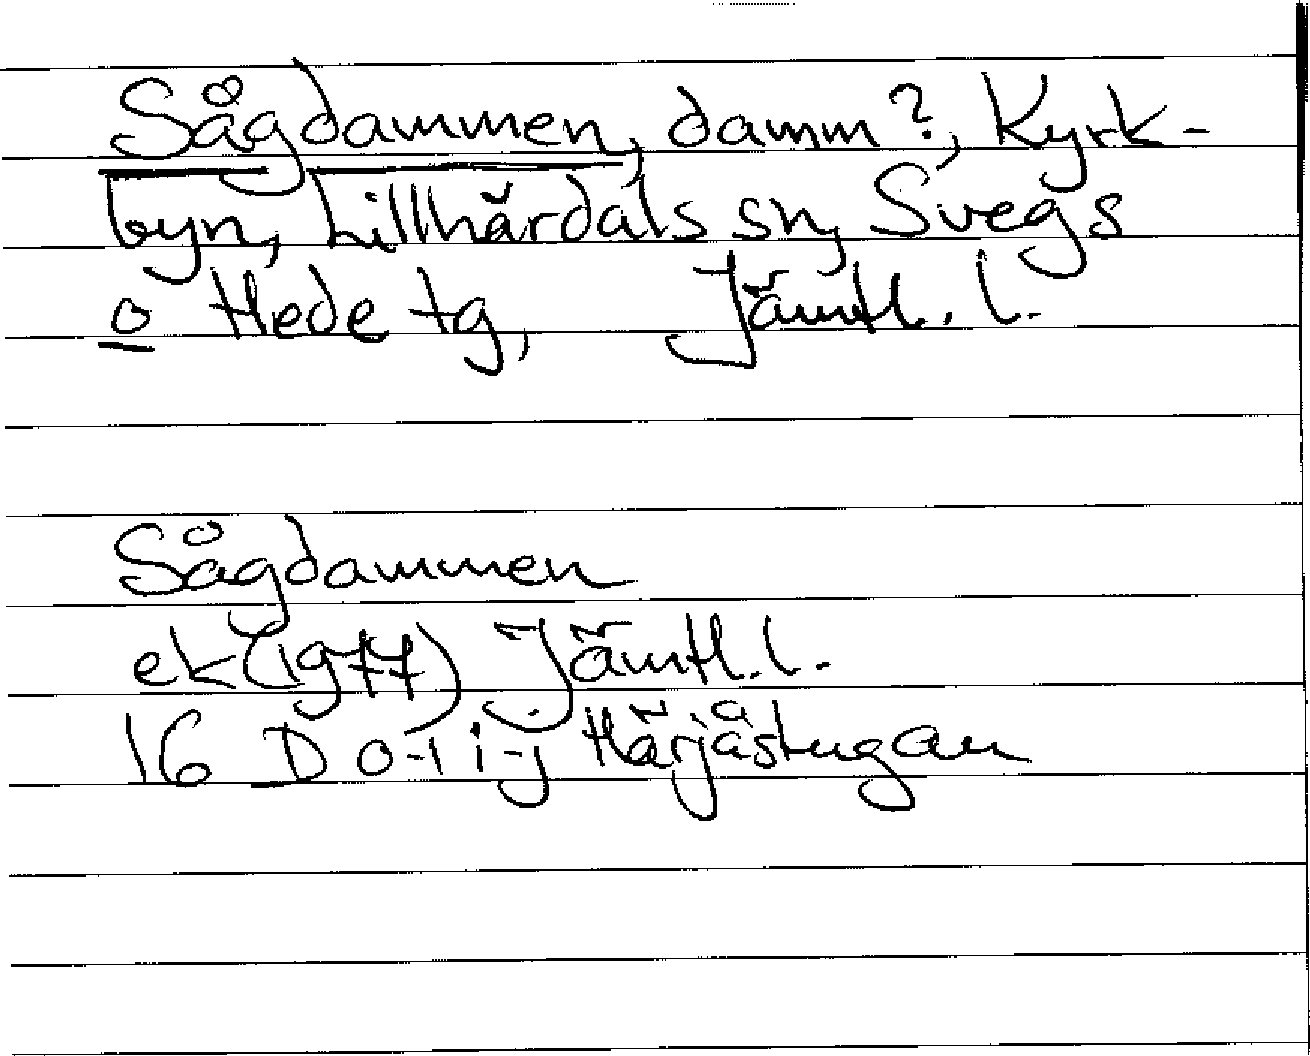 Sågdammen, damm?, Kyrk-
byn, Lillhärdals sn, Svegs
o Hede tg, Jämtl. l.
Sågdammen
ek (1977) Jämtl. l.
16 D o-1 i-j Härjåstugan